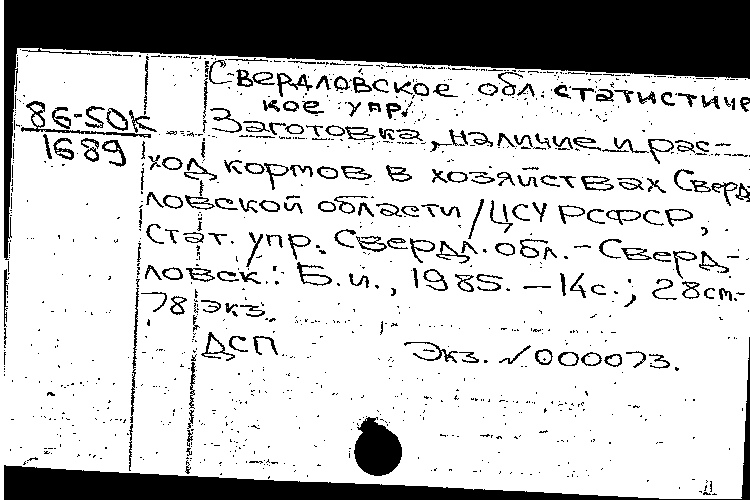 Свердловское обл. статистиче
кое упр.
86-50К
1689
Заготовка, наличие и рас-
ход кормов в хозяйствах Сверд
ловской области / ЦСУ РСФСР,
Стат. упр. Свердл. обл. - Сверд-
ловск.: Б.и., 1985. - 14с.; 28см.-
78 экз.
ДСП Экз. №000073.